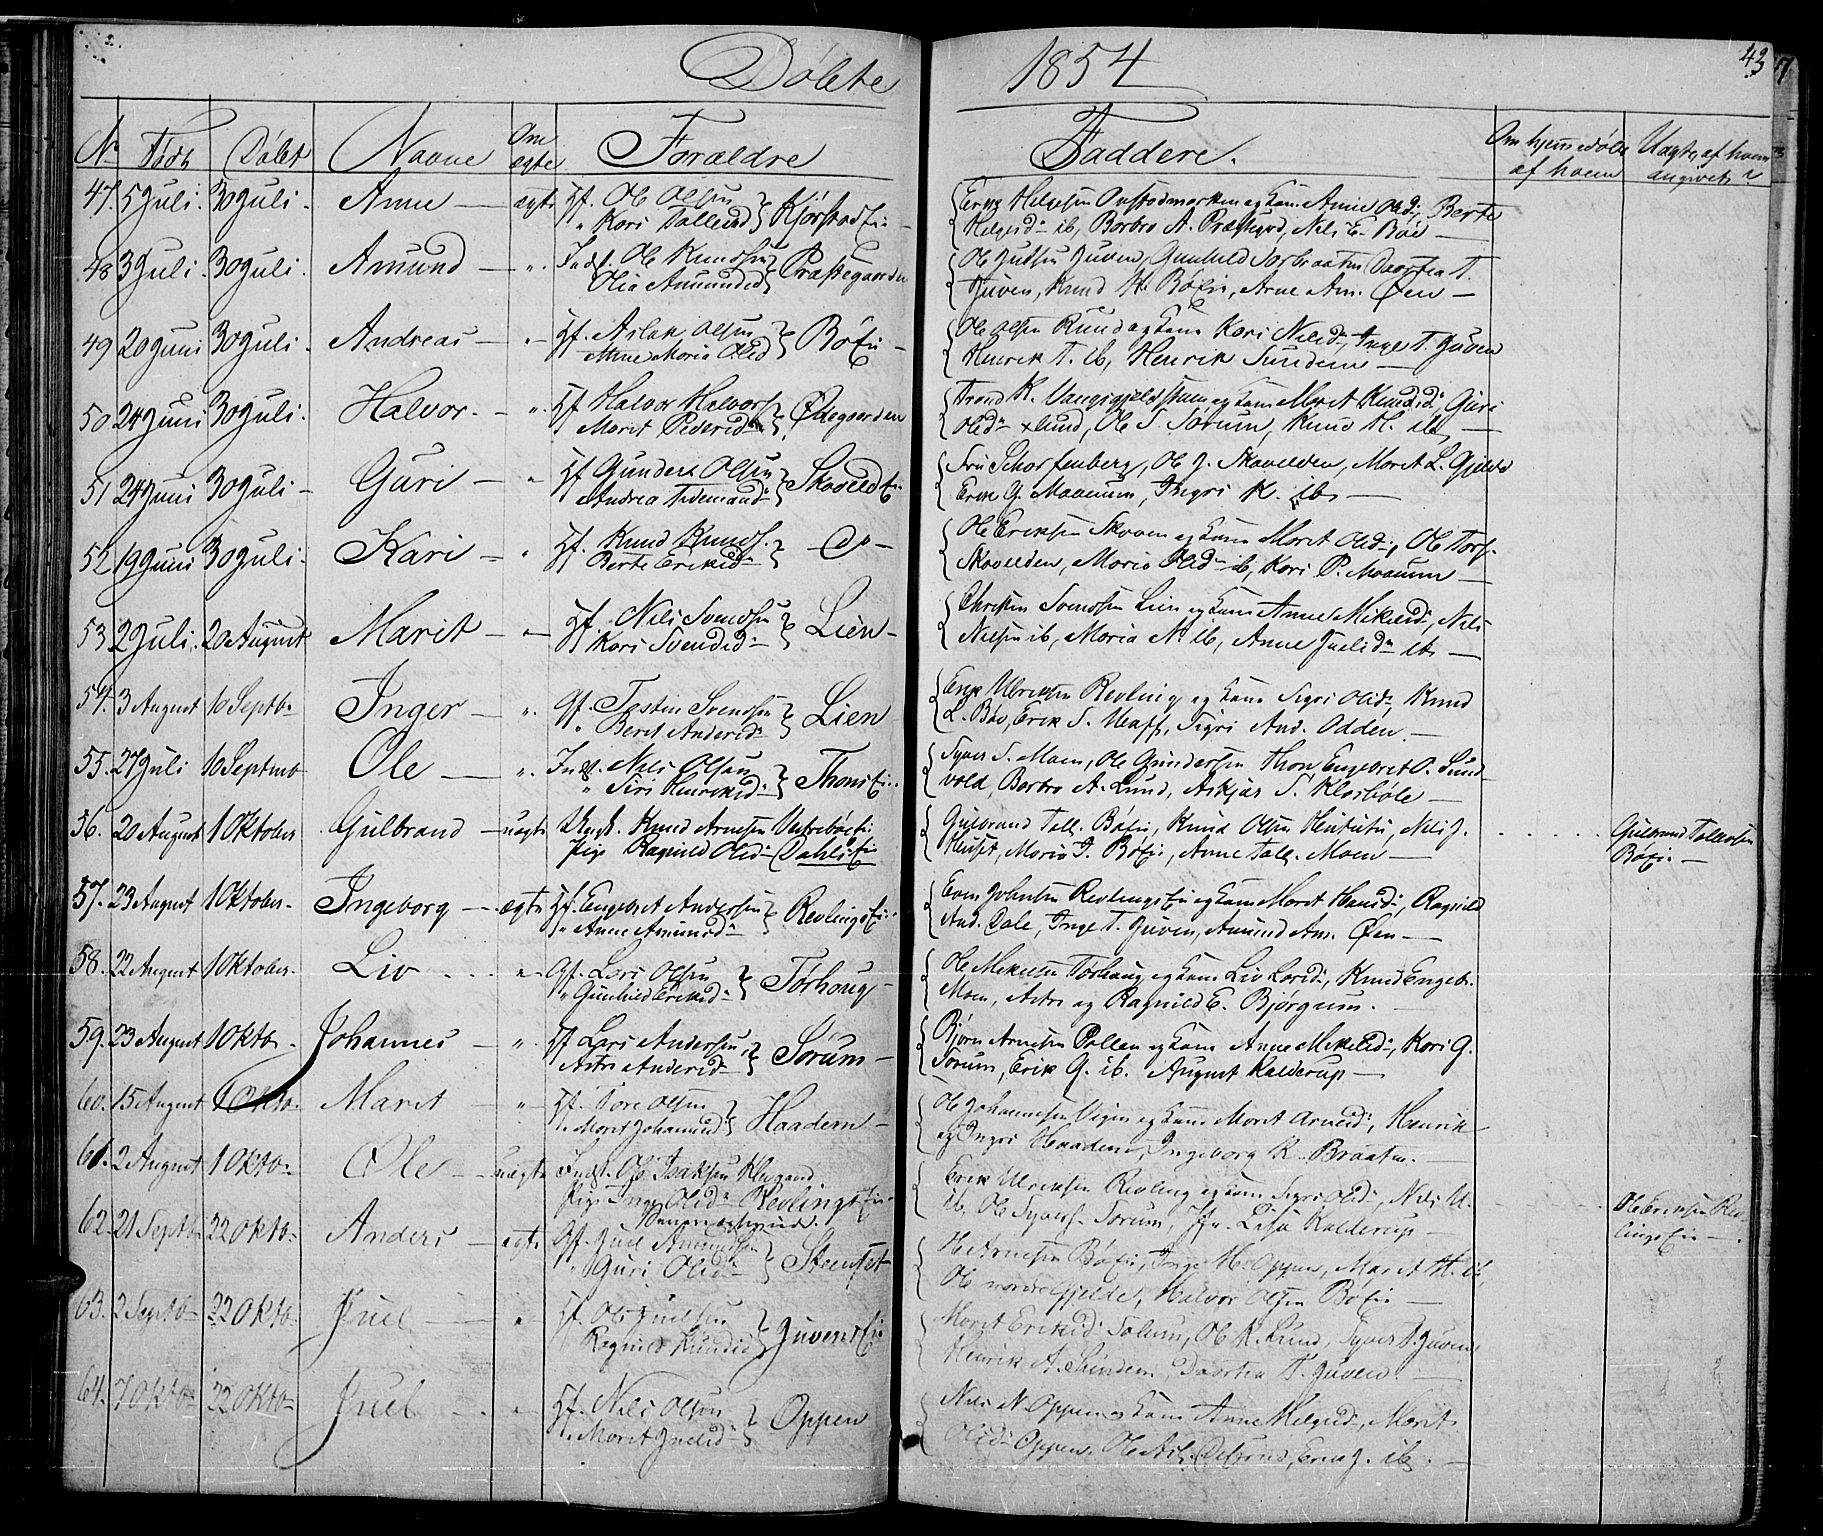 Döbte 1854
42
7
No Födt Döbt Navne Om ægte Forældre Faddere. Om hjemmedöbt af hvem Uægte, af hvem angivet
47. 5 Juli. 30 Juli. Anne — ægte Hf. Ole Olsen
" Kari Tollevsd Kjörstad Ei.
Helgesd ib, Barbro A. Præstgrd, Nils E. Böe —
48 3 Juli. 30 Juli. Amund — ". Indst. Ole Knudsen
Olia Amundsd Præstegaarden
Ole Juelsen Juven, Gunhild Sorbraaten Daartea T.
Juven, Knud H. Böei, Arne Am. Öen —
49 20 Juni 30 Juli. Andreas — " Hf. Aslak Olsen
Anne Maria Olsd Böei —
Ole Olsen Ruud og Kone Kari Nilsd, Inge T. Juven
Henrik T. ib, Henrik Sundem —
50 24 Juni 30 Juli. Halvor. — ". Hf Halvor Halvors.
Marit Pedersd Ödegaarden
Trond K. og Kone Marit Knudsd, Guri
Olsd Lund, Ole S. Sorum, Knud H. ib —
51 24 Juni 30 Juli — Guri — " Hf Gunder Olsen
Andrea Tidemandsd Skovelds Ei.
Fru Scharfenberg, Ole J. Skovelden, Marit L. Gjelde
Erik G. Moaunum, Ingri K. ib —
52 19 Juni 30 Juli. Kari — " Hf. Knud Knuds.
Berte Eriksd — do —
Ole Eriksen Skoven og Kone Marit Olsd, Ole Tors.
Skovelden, Maria Olsd ib, Kari P. —
53 2 Juli. 20 August Marit — " Hf. Nils Svendsen
Kari Svendsd Lien —
Christen Svendsen Lien og Kone Anne Mikelsd, Nils
Nielsen ib, Maria N. ib, Anne Juelsd ib —
54. 3 August 10 Septb. Inger — ". Gf. Torstin Svendsen
" Berit Andersd Lien
Erik Ulriksen Revling og Kone Sigri Olsd, Knud
L. Böe, Erik S. , Sigri And. Odden. —
55. 27 Juli 10 Septmb Ole — ". Indst. Nils Olsen
" Siri Henriksd Thons Ei.
Syver S. Moen, Ole Gundersen Thon Engebret O. Sund
vold, Barbro A. Lund, Askjær S. Klosböle —
56. 20 August 1 Oktober Gulbrand — uægte Ungk. Knud Arnesen
Pige Ragnild Olsd Dahls Ei
Gulbrand Toll. Böei, Knud Olsen , Nils J.
, Maria J. Böei, Anne Toll. Moen —
Gulbrand Tollevsen
Böei. —
57. 23 August 1 Oktober. Ingeborg — ægte Hf. Engebret Andersen
" Anne Amundsd Revlings Ei.
Even Johnsen Revlings Ei og Kone Marit Hansd, Ragnild
And. Dale, Inge T. Juven, Amund Am. Öen —
58. 22 August 1 Oktober. Liv " Gf. Lars Olsen
" Gunhild Eriksd Törhaug —
Ole Mikelsen Törhaug og Kone Liv Larsd, Knud Engeb.
Moen, Astri og Ragnild E. Bjørgum. —
59. 23 August 1 Oktb. Johannes — ". Hf Lars Andersen
Astri Andersd Sörum —
Björn Arnesen Pollen og Kone Anne Mikelsd, Kari G.
Sorum, Erik G. ib. August Kalderup —
60. 15 August 1 Oktb. Marit — " Hf. Tore Olsen
" Marit Johannesd Haadem —
Ole Johannesen og Kone Marit Arnesd, Henrik
og Ingri Haadem, Ingeborg K. Braaten. —
61. 2 August 1 Oktb. Ole — uægte Indst. Ole Isaksen
Pige Inge Olsd Revlings Ei
Erik Ulriksen Revling og Kone Sigri Olsd, Nils U.
ib, Ole Syvers. Sorum, Jfr. Lisa Kalderup —
Ole Eriksen Rev
lings Ei —
62. 21 Septb. 22 Oktb. Anders — ægte Gf. Juel Amundsen
" Guri Olsd Steenset
H. Arnesen Böei, Inge H. Oppen, Marit H. ib,
Ole nordre Gjelde, Halvor Olsen Böei —
63. 2 Septb — 22 Oktb. Juel — " Hf. Ole Juelsen
Ragnild Knudsd Juvens Ei
Marit Eriksd Solum, Ole K. Lund, Syver T. Juven,
Henrik A. Sundem, Daartea T. Juven. —
64. 7 Oktb — 22 Oktb — Juel — " Hf. Nils Olsen
" Marit Juelsd Oppen
Nils N. Oppen og Kone Anne Helgesd, Marit
Olsd Oppen, Ole Asl. , Erik J. ib. —